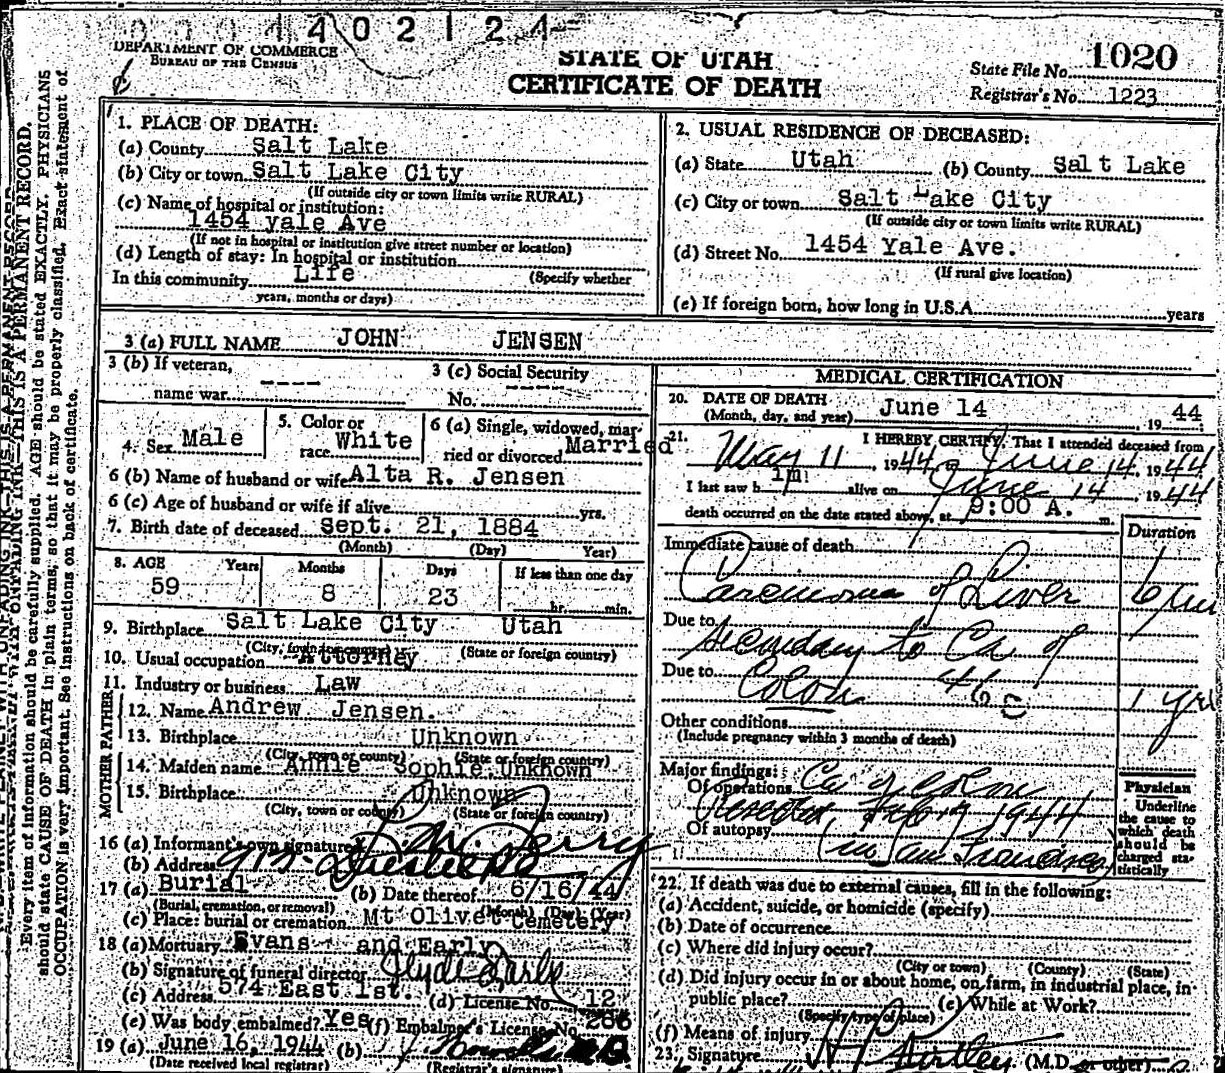 0001402124
DEPARTMENT OF COMMERCE
BUREAU OF THE CENSUS
STATE OF UTAH
CERTIFICATE OF DEATH
State File No. 1020
Registrar's No. 1223
Every item of information should be carefully supplied. AGE should be stated EXACTLY. PHYSICIANS
should state CAUSE OF DEATH in plain terms, so that it may be properly classified. Exact statement of
OCCUPATION is very important. See instructions on back of certificate.
THIS IS A PERMANENT RECORD.
1. PLACE OF DEATH:
(a) County Salt Lake
(b) City or town Salt Lake City
(If outside city or town limits write RURAL)
(c) Name of hospital or institution:
1454 Yale Ave
(If not in hospital or institution give street number or location)
(d) Length of stay: In hospital or institution
In this community Life (Specify whether
years, months or days)
2. USUAL RESIDENCE OF DECEASED:
(a) State Utah (b) County Salt Lake
(c) City or town Salt Lake City
(If outside city or town limits write RURAL)
(d) Street No. 1454 Yale Ave.
(If rural give location)
(e) If foreign born, how long in U.S.A. years
3 (a) FULL NAME JOHN JENSEN
3 (b) If veteran,
name war ----
3 (c) Social Security
No. ----
4. Sex Male
5. Color or
race White
6 (a) Single, widowed, mar-
ried or divorced Married
6 (b) Name of husband or wife Alta R. Jensen
6 (c) Age of husband or wife if alive yrs.
7. Birth date of deceased Sept. 21, 1884
(Month) (Day) Year)
8. AGE Years Months Days If less than one day
59 8 23 hr. min.
9. Birthplace Salt Lake City Utah
(City, town or county) (State or foreign country)
10. Usual occupation Attorney
11. Industry or business Law
FATHER
12. Name Andrew Jensen.
13. Birthplace Unknown
(City, town or county) (State or foreign country)
MOTHER
14. Maiden name Annie Sophie Unknown
15. Birthplace Unknown
(City, town or county) (State or foreign country)
16 (a) Informant's own signature
(b) Address
17 (a) Burial (b) Date thereof 6/16/44
(Burial, cremation, or removal) (Month) (Day) (Year)
(c) Place: burial or cremation Mt Olivet Cemetery
18 (a) Mortuary Evans and Early
(b) Signature of funeral director Clyde Early
(c) Address 574 East 1st. (d) License No. 12
(e) Was body embalmed? Yes (f) Embalmer's License No. 286
19 (a) June 16, 1944 (b)
(Date received local registrar) (Registrar's signature)
MEDICAL CERTIFICATION
20. DATE OF DEATH
(Month, day, and year) June 14, 19 44
21. I HEREBY CERTIFY, That I attended deceased from
May 11, 1944, June 14, 1944
I last saw h im alive on June 14, 1944
death occurred on the date stated above, at 9:00 A. m.
Immediate cause of death Duration
Carcinoma of Liver
Due to
Secondary to Ca of
Due to Colon 46 1 yr
Other conditions
(Include pregnancy within 3 months of death)
Major findings:
Of operations Ca of Colon
Resected Feb 1944
Of autopsy (in San Francisco)
Physician
Underline
the cause to
which death
should be
charged sta-
tistically
22. If death was due to external causes, fill in the following:
(a) Accident, suicide, or homicide (specify)
(b) Date of occurrence
(c) Where did injury occur?
(City or town) (County) (State)
(d) Did injury occur in or about home, on farm, in industrial place, in
public place? (e) While at Work?
(Specify type of place)
(f) Means of injury
23. Signature (M.D. or other)